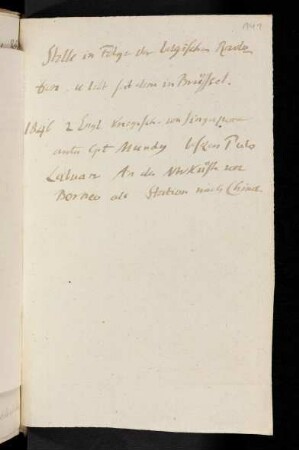 Stelle in Folge der belgischen Revolu
tion, u lebt seitdem in Brüssel.
1846 2 Engl Kriegssch. von Singapore
unter Cpt Mundy besetzen Pulo
Labuan An der NWKüste von
Borneo als Station nach China